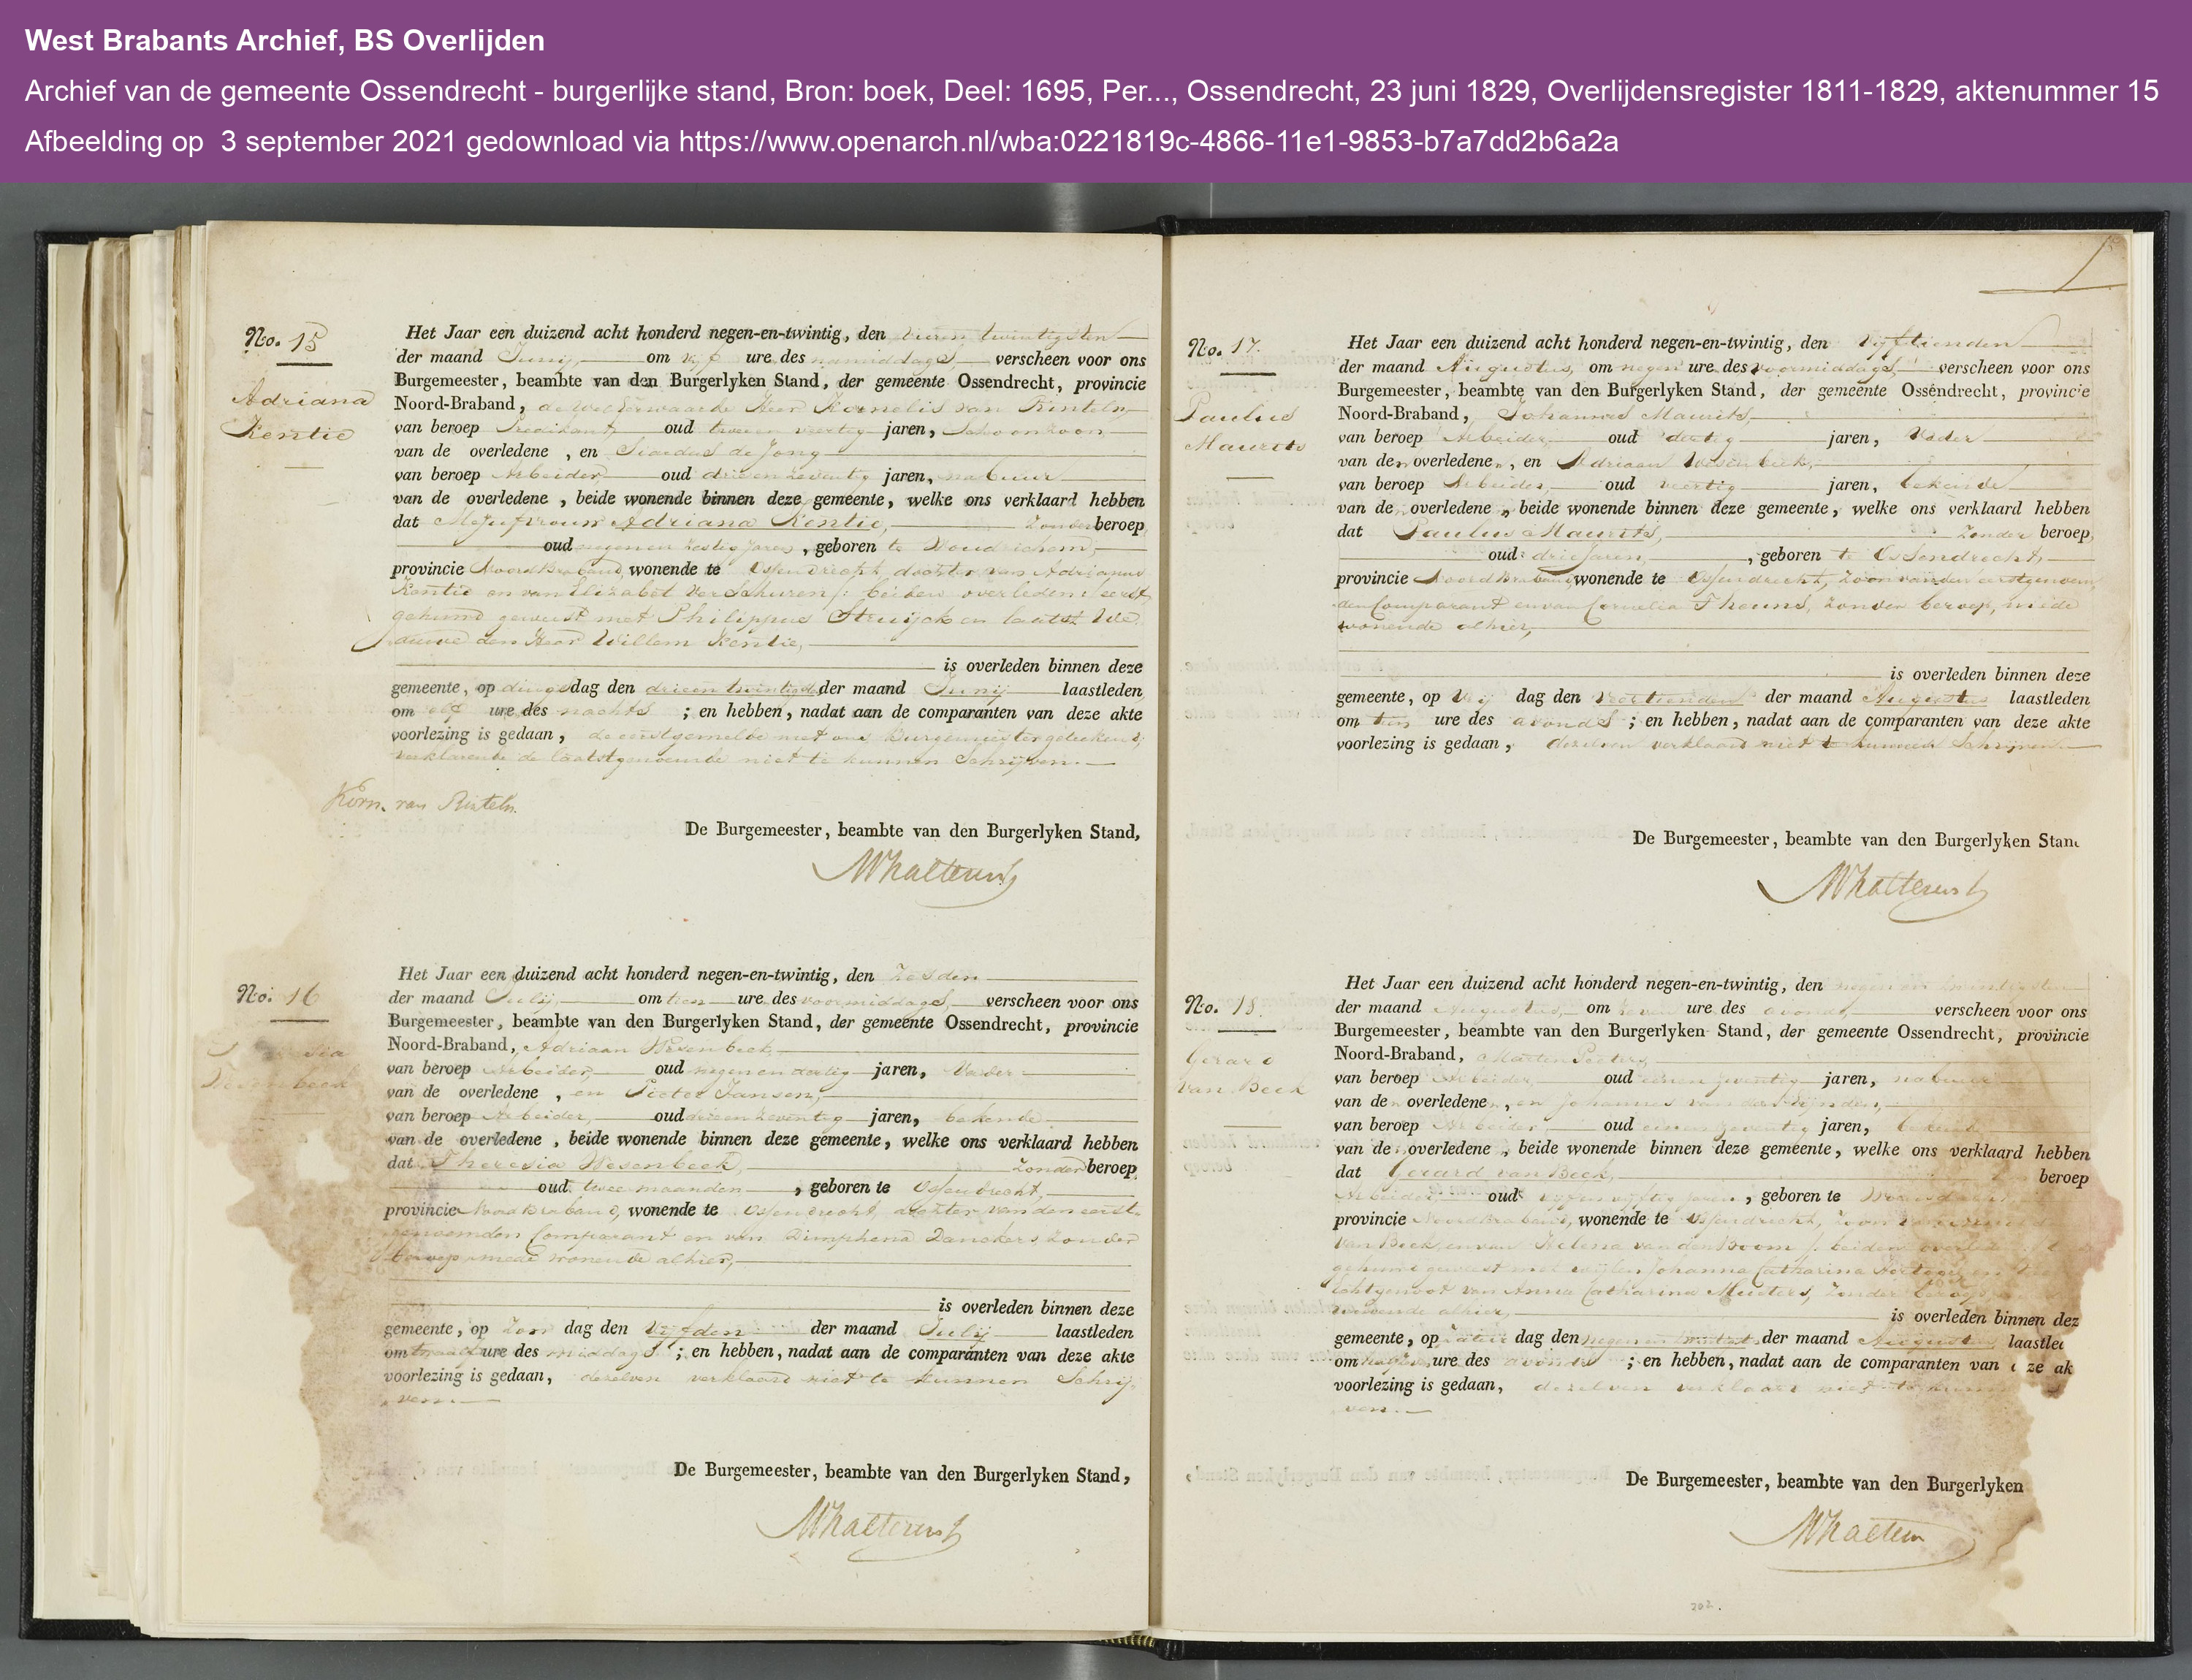 West Brabants Archief, BS Overlijden
Archief van de gemeente Ossendrecht - burgerlijke stand, Bron: boek, Deel: 1695, Per..., Ossendrecht, 23 juni 1829, Overlijdensregister 1811-1829, aktenummer 15
Afbeelding op 3 september 2021 gedownload via https://www.openarch.nl/wba:0221819c-4866-11e1-9853-b7a7dd2b6a2a
No. 15
Adriana
Kentie
Het Jaar een duizend acht honderd negen-en-twintig, den vieren twintigsten
der maand Junij, om vijf ure des namiddags, verscheen voor ons
Burgemeester, beambte van den Burgerlyken Stand, der gemeente Ossendrecht, provincie
Noord-Braband, de weleerwaarde Heer Kornelis van Rinteln,
van beroep Predikant, oud tweeen veertig jaren, Schoonzoon
van de overledene, en Siardus de Jong
van beroep Arbeider oud drieen zeventig jaren, nabuur
van de overledene, beide wonende binnen deze gemeente, welke ons verklaard hebben
dat Mejufvrouw Adriana Kentie, zonder beroep,
oud negenen zestig jaren, geboren te Woudrichem,
provincie Noord Braband, wonende te Ossendrecht, dochter van Adrianus
Kentie en van Elizabet Verschuren /: beiden overleden :/ eerst
gehuwd geweest met Philippus Struijck en laatst We
duwe den Heer Willem Kentie,
is overleden binnen deze
gemeente, op dingsdag den drieen twintigste der maand Junij laastleden
om elf ure des nachts; en hebben, nadat aan de comparanten van deze akte
voorlezing is gedaan, de eerstgemelde met ons Burgemeester geteekend,
verklarende de laatstgenoemde niet te kunnen Schrijven.
Korn. van Rinteln.
De Burgemeester, beambte van den Burgerlyken Stand,
No. 16
Het Jaar een duizend acht honderd negen-en-twintig, den Zesden
der maand Julij, om tien ure des voormiddags, verscheen voor ons
Burgemeester, beambte van den Burgerlyken Stand, der gemeente Ossendrecht, provincie
Noord-Braband, Adriaan Wesenbeek,
van beroep Arbeider, oud negenen dertig jaren, Vader
van de overledene, en Pieter Jansen,
van beroep Arbeider, oud drieen zeventig jaren, bekende
van de overledene, beide wonende binnen deze gemeente, welke ons verklaard hebben
dat Theresia Wesenbeek, Zonder beroep,
oud twee maanden, geboren te Ossendrecht,
provincie Noord Braband, wonende te Ossendrecht, dochter van den eerst
genoemden Comparant en van Dimphena Danckers zonder
beroep, mede wonende alhier,
is overleden binnen deze
gemeente, op Zon dag den Vijfden der maand Julij laastleden
om twaalf ure des middags; en hebben, nadat aan de comparanten van deze akte
voorlezing is gedaan, dezelven verklaard niet te kunnen Schrij
ven.
De Burgemeester, beambte van den Burgerlyken Stand,
No. 17.
Paulus
Maurits
Het Jaar een duizend acht honderd negen-en-twintig, den Vijftienden
der maand Augustus, om negen ure des voormiddags, verscheen voor ons
Burgemeester, beambte van den Burgerlyken Stand, der gemeente Ossendrecht, provincie
Noord-Braband, Johannes Maurits,
van beroep Arbeider, oud dertig jaren, Vader
van den overledene, en Adriaan Wesenbeek,
van beroep Arbeider, oud veertig jaren, bekende
van de overledene, beide wonende binnen deze gemeente, welke ons verklaard hebben
dat Paulus Maurits, Zonder beroep,
oud drie jaren, geboren te Ossendrecht,
provincie Noord Braband wonende te Ossendrecht, Zoon van den eerstgenoem
den Comparant en van Cornelia Theuns, zonder beroep, mede
wonende alhier,
is overleden binnen deze
gemeente, op Vrij dag den Veertienden der maand Augustus laastleden
om tien ure des avonds; en hebben, nadat aan de comparanten van deze akte
voorlezing is gedaan, dezelven verklaard niet te kunnen Schrijven.
De Burgemeester, beambte van den Burgerlyken Stand
No. 18.
Gerard
van Beek
Het Jaar een duizend acht honderd negen-en-twintig, den negen en twintigsten
der maand Augustus, om zeven ure des avonds, verscheen voor ons
Burgemeester, beambte van den Burgerlyken Stand, der gemeente Ossendrecht, provincie
Noord-Braband, Marten Peeters,
van beroep Arbeider, oud eenen zeventig jaren, nabuur
van den overledene, en Johannes van der
van beroep Arbeider oud jaren, bekende
van den overledene, beide wonende binnen deze gemeente, welke ons verklaard hebben
dat Gerard van Beek, beroep
Arbeider, oud vijfen vijftig jaren, geboren te
provincie Noord Braband, wonende te Ossendrecht, Zoon van
van Beek, en van Helena van den Boom /: beiden
gehuwd geweest met wijlen Johanna Catharina
Echtgenoot van Anna Catharina Musters, zonder beroep,
wonende alhier, is overleden binnen dez
gemeente, op dag den negen en twintigste der maand Augustus laastle
om ure des avonds; en hebben, nadat aan de comparanten van ze ak
voorlezing is gedaan, dezelven verklaard niet te
ven.
De Burgemeester, beambte van den Burgerlyken
202.